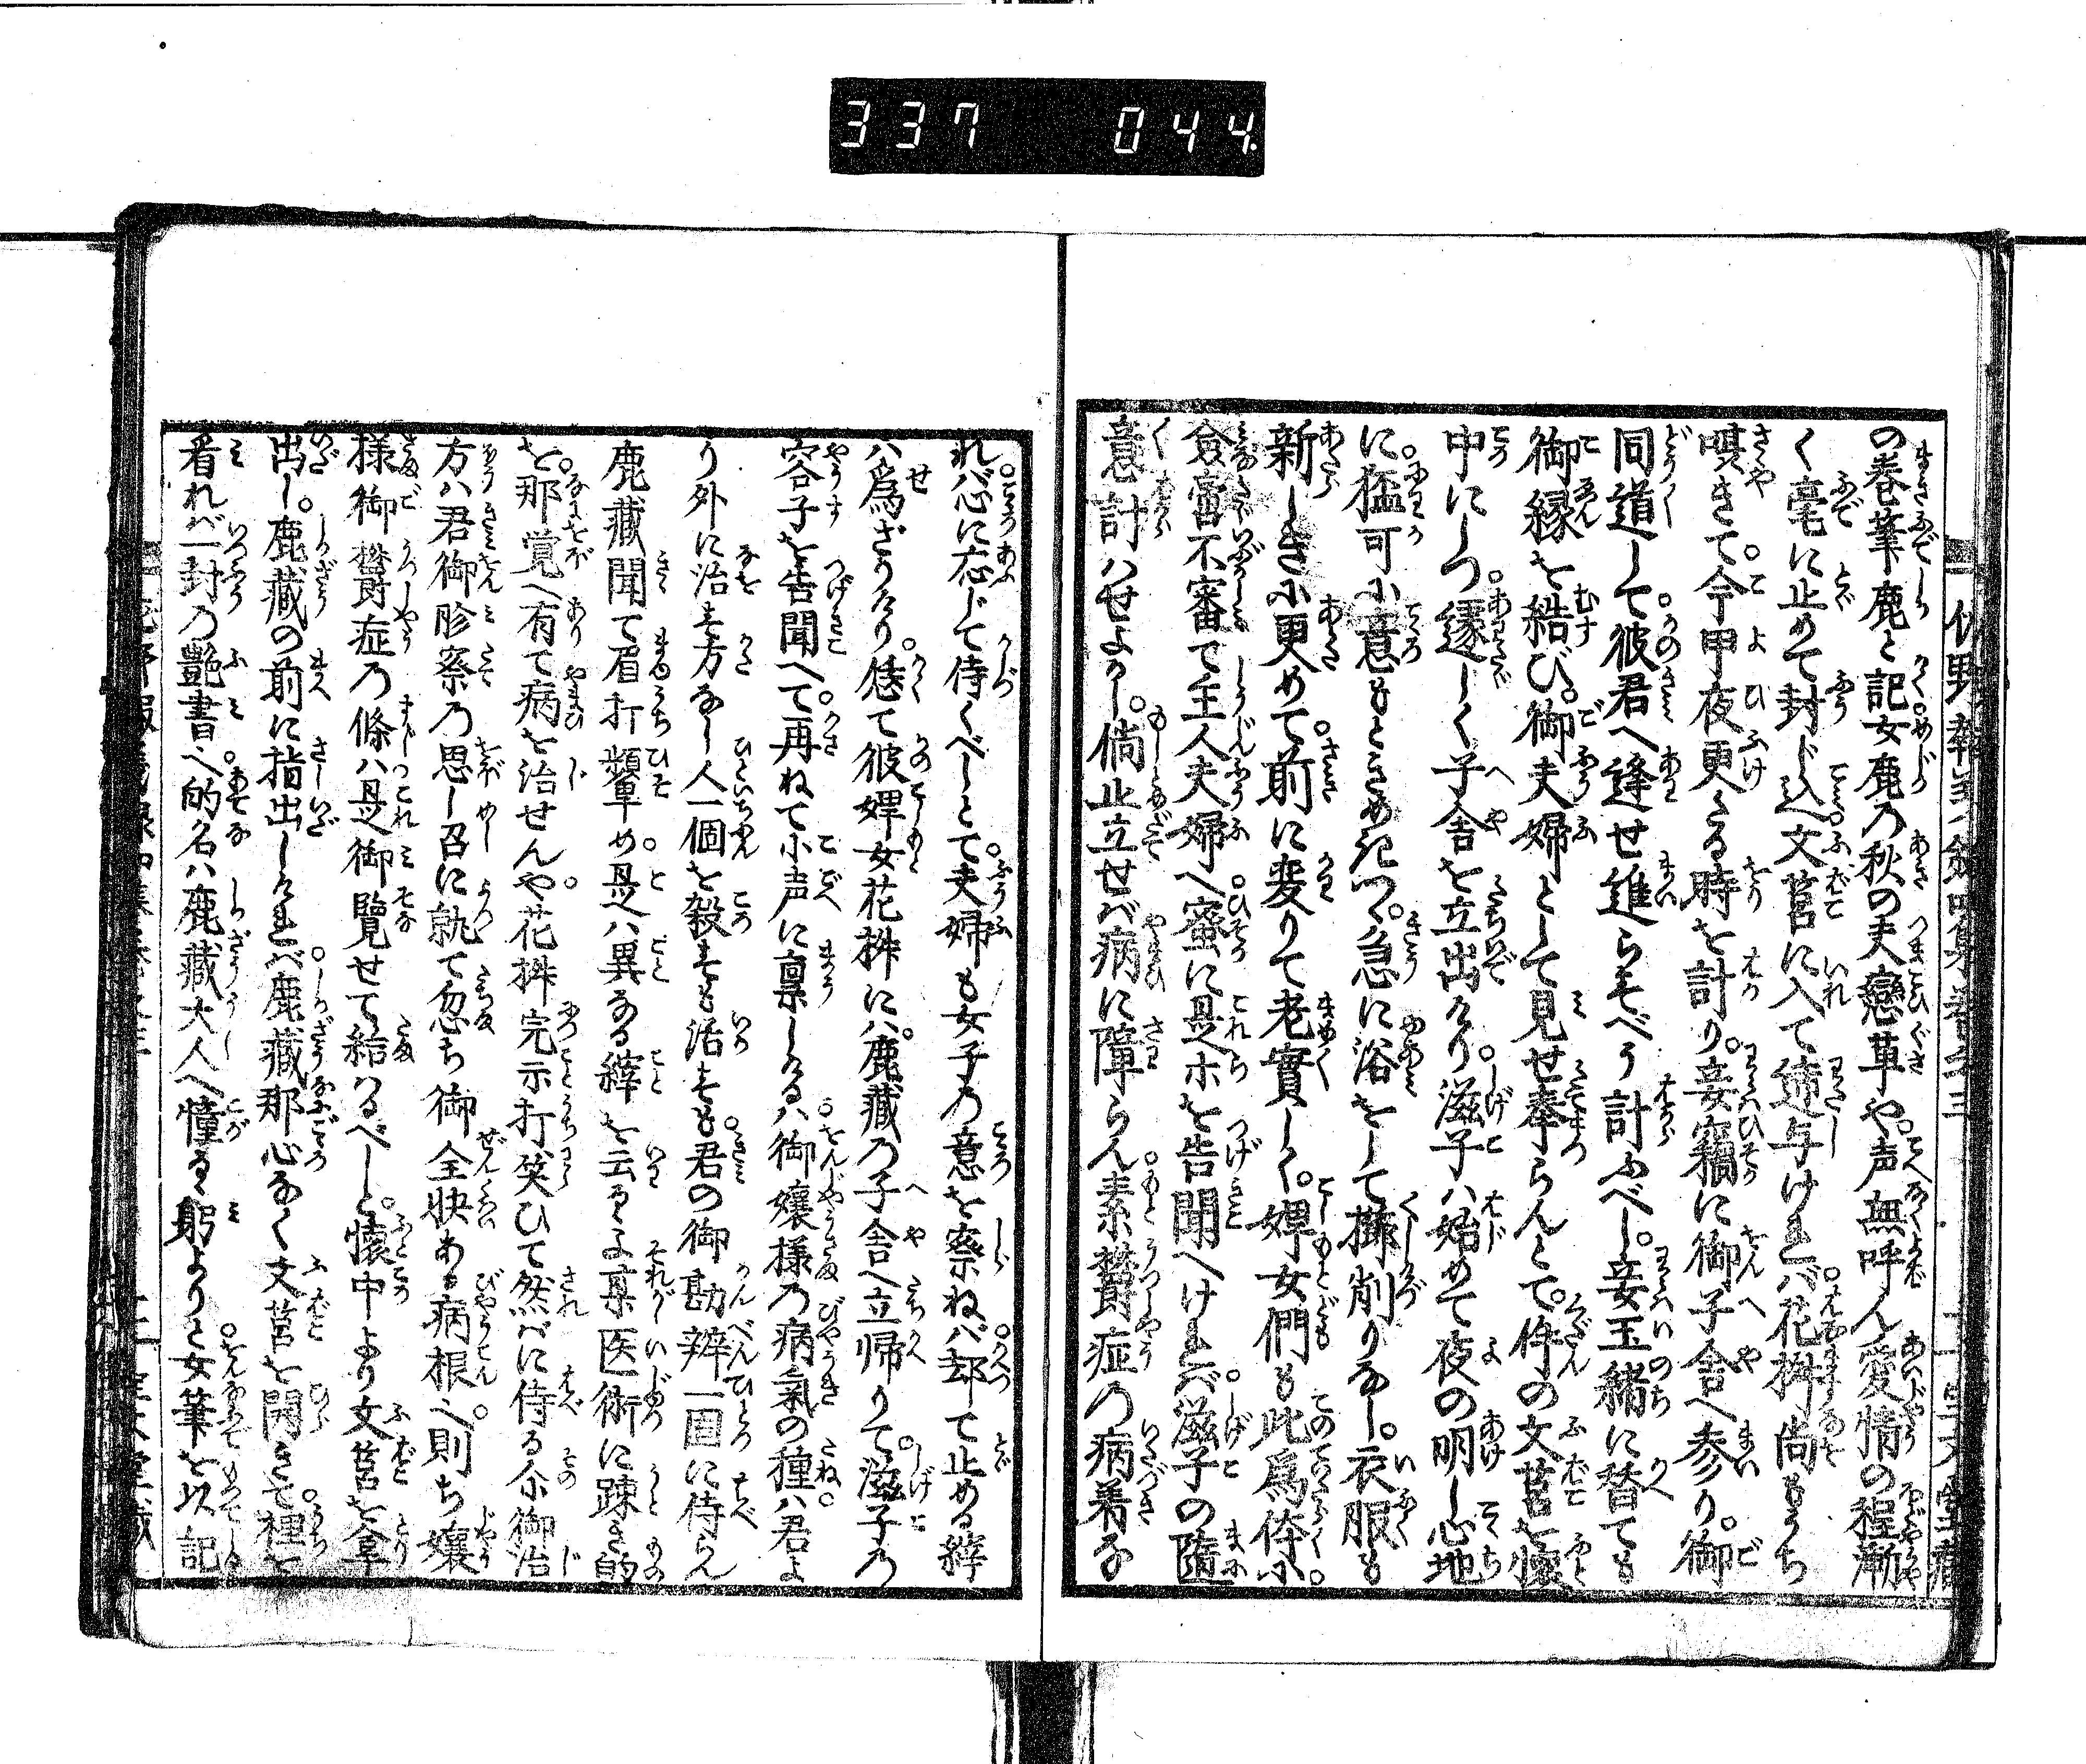 337 044.
の巻筆鹿と記女鹿乃秋の夫戀草や。声無呼ん愛情の程漸
く毫に止めて封じ込文筥に入て逓与けれバ。花桝尚もうち
唄きて。今甲夜更たる時を計り。妾竊に御子舎へ参り。御
同道して。彼君へ逢せ進らすべう計ふべし。妾玉緒に替ても
御縁を結び。御夫婦として見せ奉らんとて。件の文筥を懐
中にしつ。遽しく子舎を立出けり。滋子ハ始めて夜の明し心地
に。猛可に意もときめきつゝ。急に浴をして櫛削りなし。衣服も
新しきに更めて。前に変りて老實しく。婢女們も此為体に。
僉審不審て主人夫婦へ。蜜に是ホを告聞へけれバ。滋子の随
意計ハせよかし。倘止立せバ病に障らん。素欝症の病着な
れバ。心に応じて侍くべしとて。夫婦も女子乃意を察ねバ。却て止める縡
ハ為ざりけり。恁て彼婢女花桝にハ。鹿藏乃子舎へ立帰りて。滋子乃
容子を告聞へて。再ねて小声に稟しけるハ。御嬢様乃病氣の種ハ。君よ
り外に治す方なし。人一個を殺すも活すも。君の御勘辨一箇に侍らん
鹿藏聞て眉打顰め。是ハ異なる縡を云るゝよ。某医術に踈き的
を。那覚へ有て病を治せんや。花桝完示打笑ひて。然バに侍る。尓御治
方ハ君御胗察乃思し召に執て。忽ち御全快ある病根へ。則ち嬢
様御欝症乃條ハ。是御覧せて給はるべしと。懐中より文筥を拿
出し。鹿藏の前に指出しけれバ。鹿藏那心なく文筥を開きて裡を
看れバ。一封乃艶書へ。的名ハ鹿藏大人へ憧るゝ躬よりと。女筆を以記